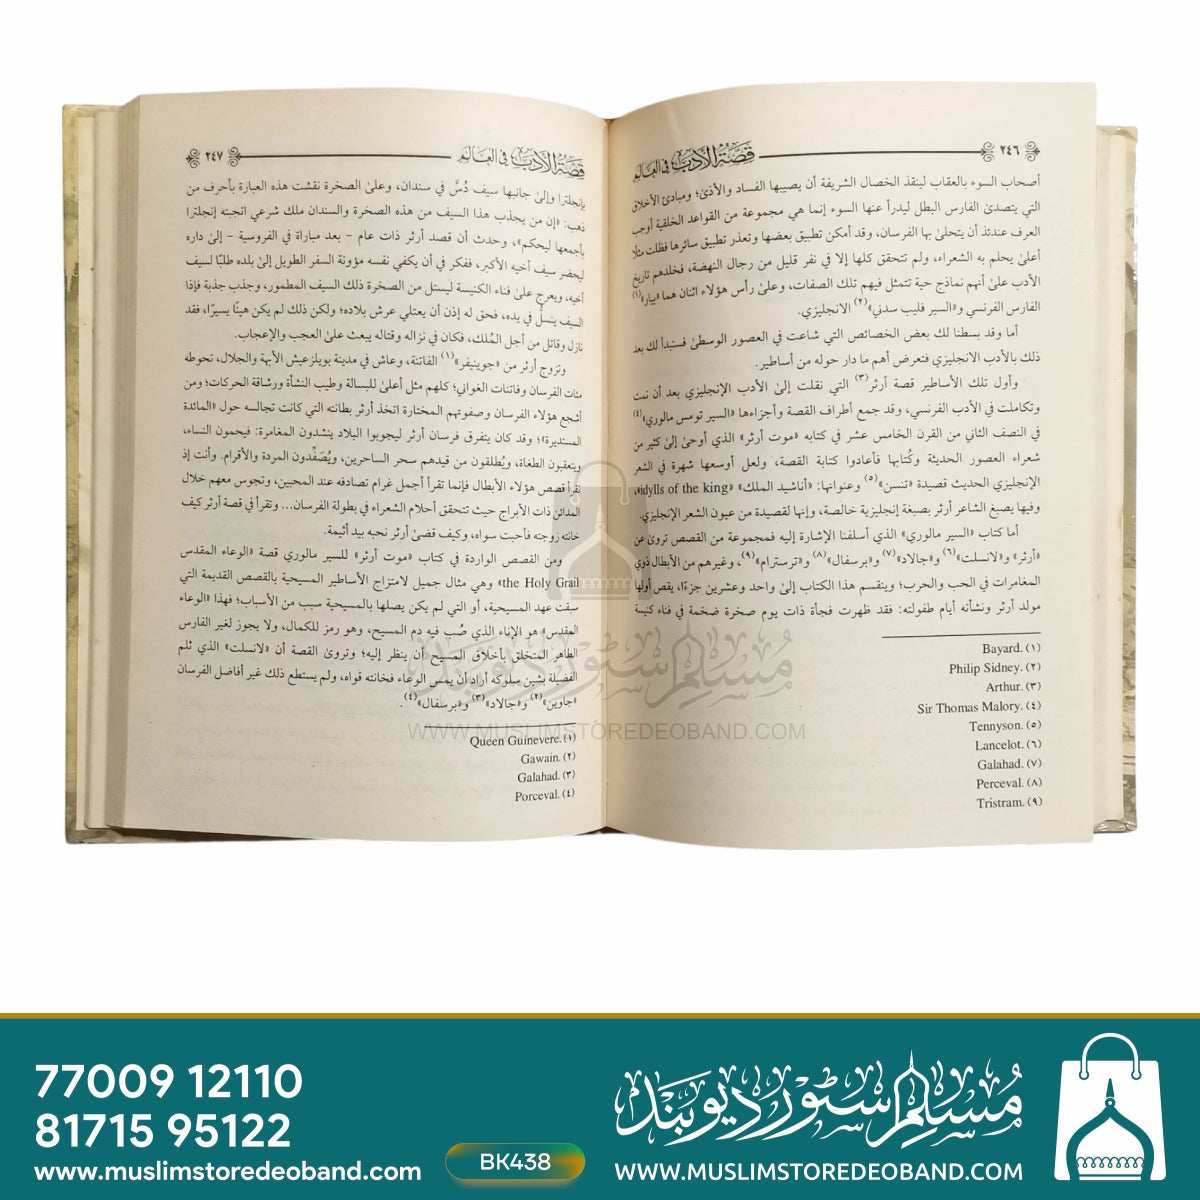 ٢٤٦
قصة الأدب في العالم
أصحاب السوء بالعقاب لينقذ الخصال الشريفة أن يصيبها الفساد والأذىٰ؛ ومبادئ الأخلاق
التي يتصدىٰ الفارس البطل ليدرأ عنها السوء إنما هي مجموعة من القواعد الخلقية أوجب
العرف عندئذ أن يتحلىٰ بها الفرسان، وقد أمكن تطبيق بعضها وتعذر تطبيق سائرها فظلت مثلًا
أعلىٰ يحلم به الشعراء، ولم تتحقق كلها إلا في نفر قليل من رجال النهضة، فخلدهم تاريخ
الأدب علىٰ أنهم نماذج حية تتمثل فيهم تلك الصفات، وعلىٰ رأس هؤلاء اثنان هما «بيار»(١)
الفارس الفرنسي و«السير فليب سدني»(٢) الانجليزي.
أما وقد بسطنا لك بعض الخصائص التي شاعت في العصور الوسطىٰ فسنبدأ لك بعد
ذلك بالأدب الانجليزي فنعرض أهم ما دار حوله من أساطير.
وأول تلك الأساطير قصة أرثر(٣) التي نقلت إلىٰ الأدب الإنجليزي بعد أن نمت
وتكاملت في الأدب الفرنسي، وقد جمع أطراف القصة وأجزاءها «السير تومس مالوري»(٤)
في النصف الثاني من القرن الخامس عشر في كتابه «موت أرثر» الذي أوحىٰ إلىٰ كثير من
شعراء العصور الحديثة وكُتابها فأعادوا كتابة القصة، ولعل أوسعها شهرة في الشعر
الإنجليزي الحديث قصيدة «تنسن»(٥) وعنوانها: «أناشيد الملك» «idylls of the king»،
وفيها يصبغ الشاعر أرثر بصبغة إنجليزية خالصة، وإنها لقصيدة من عيون الشعر الإنجليزي.
أما كتاب «السير مالوري» الذي أسلفنا الإشارة إليه فمجموعة من القصص تروىٰ عن
«أرثر» و«لانسلت»(٦) و«جالاد»(٧) و«برسفال»(٨) و«ترسترام»(٩)، وغيرهم من الأبطال ذوي
المغامرات في الحب والحرب؛ وينقسم هذا الكتاب إلىٰ واحد وعشرين جزءًا، يقص أولها
مولد أرثر ونشأته أيام طفولته: فقد ظهرت فجأة ذات يوم صخرة ضخمة في فناء كنيسة
(١) Bayard.
(٢) Philip Sidney.
(٣) Arthur.
(٤) Sir Thomas Malory.
(٥) Tennyson.
(٦) Lancelot.
(٧) Galahad.
(٨) Perceval.
(٩) Tristram.
قصة الأدب في العالم
٢٤٧
بإنجلترا وإلىٰ جانبها سيف دُسَّ في سندان، وعلىٰ الصخرة نقشت هذه العبارة بأحرف من
ذهب: «إن من يجذب هذا السيف من هذه الصخرة والسندان ملك شرعي انجبته إنجلترا
بأجمعها ليحكم»، وحدث أن قصد أرثر ذات عام – بعد مباراة في الفروسية – إلىٰ داره
ليحضر سيف أخيه الأكبر، ففكر في أن يكفي نفسه مؤونة السفر الطويل إلىٰ بلده طلبًا لسيف
أخيه، ويعرج علىٰ فناء الكنيسة ليستل من الصخرة ذلك السيف المطمور، وجذب جذبة فإذا
السيف ينسلُّ في يده، فحق له إذن أن يعتلي عرش بلاده؛ ولكن ذلك لم يكن هينًا يسيرًا، فقد
نازل وقاتل من أجل المُلك، فكان في نزاله وقتاله يبعث علىٰ العجب والإعجاب.
وتزوج أرثر من «جوينيفر»(١) الفاتنة، وعاش في مدينة بويلز عيش الأبهة والجلال، تحوطه
مئات الفرسان وفاتنات الغواني؛ كلهم مثل أعلىٰ للبسالة وطيب النشأة ورشاقة الحركات؛ ومن
أشجع هؤلاء الفرسان وصفوتهم المختارة اتخذ أرثر بطانته التي كانت تجالسه حول «المائدة
المستديرة»؛ وقد كان يتفرق فرسان أرثر ليجوبوا البلاد ينشدون المغامرة: فيحمون النساء،
ويتعقبون الطغاة، ويُطلقون من قيدهم سحر الساحرين، ويُصَفِّدون المردة والأقزام. وأنت إذ
تقرأ قصص هؤلاء الأبطال فإنما تقرأ أجمل غرام تصادفه عند المحبين، وتجوس معهم خلال
المدائن ذات الأبراج حيث تتحقق أحلام الشعراء في بطولة الفرسان... وتقرأ في قصة أرثر كيف
خانته زوجته فأحبت سواه، وكيف قضىٰ أرثر نحبه بيد أثيمة.
ومن القصص الواردة في كتاب «موت أرثر» للسير مالوري قصة «الوعاء المقدس
the Holy Grail» وهي مثال جميل لامتزاج الأساطير المسيحية بالقصص القديمة التي
سبقت عهد المسيحية، أو التي لم يكن يصلها بالمسيحية سبب من الأسباب؛ فهذا «الوعاء
المقدس» هو الإناء الذي صُب فيه دم المسيح، وهو رمز للكمال، ولا يجوز لغير الفارس
الطاهر المتخلق بأخلاق المسيح أن ينظر إليه؛ وتروىٰ القصة أن «لانسلت» الذي ثلم
الفضيلة بشين سلوكه أراد أن يمس الوعاء فخانته قواه، ولم يستطع ذلك غير أفاضل الفرسان
«جاوين»(٢) و«جالاد»(٣) و«برسفال»(٤).
(١) Queen Guinevere.
(٢) Gawain.
(٣) Galahad.
(٤) Porceval.
مسلم سٹور دیوبند
WWW.MUSLIMSTOREDEOBAND.COM
77009 12110
81715 95122
www.muslimstoredeoband.com
BK438
مسلم سٹور دیوبند
WWW.MUSLIMSTOREDEOBAND.COM